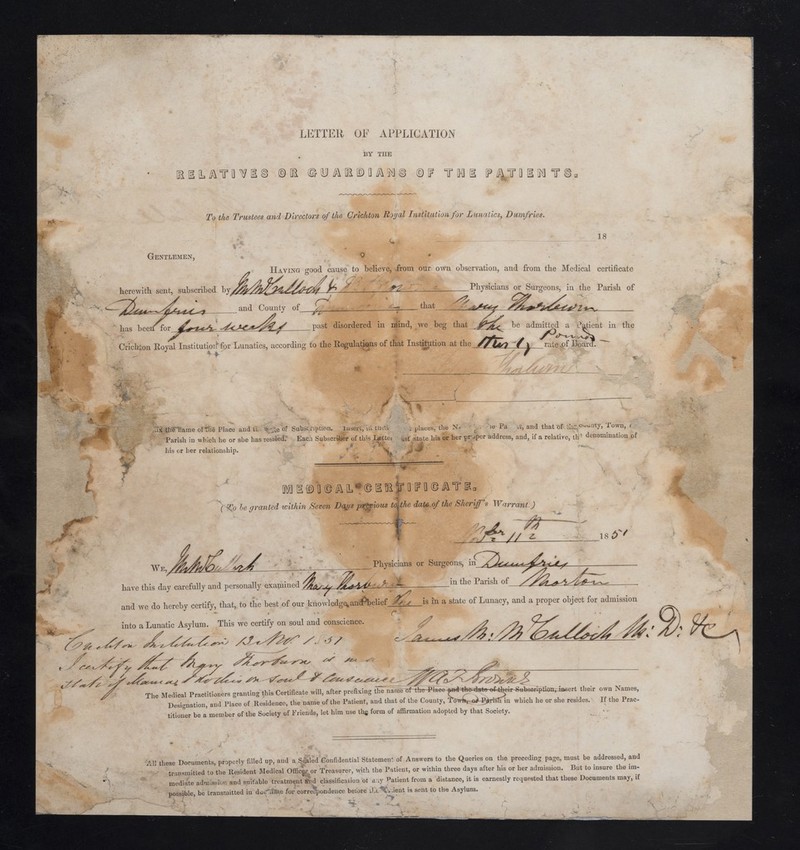 LETTER OF APPLICATION
BY THE
RELATIVES OR GUARDIANS OF THE PATIENTS.
To the Trustees and Directors of the Crichton Royal Institution for Lunatics, Dumfries.
18
GENTLEMEN,
HAVING good cause to believe, from our own observation, and from the Medical certificate
herewith sent, subscribed by McCulloch & Physicians or Surgeons, in the Parish of
Dumfries and County of that Mary Thorburn
has been for four weeks past disordered in mind, we beg that she be admitted a Patient in the
Crichton Royal Institution for Lunatics, according to the Regulations of that Institution at the Thirty Pounds rate of Board.
Thorburn
the Name of the Place and of Subscription. Insert, in places, the of Pa and that of the County, Town,
Parish in which he or she has resided. Each Subscriber of this Letter state his or her proper address, and, if a relative, the denomination of
his or her relationship.
MEDICAL CERTIFICATE.
(To be granted within Seven Days previous to the date of the Sheriff's Warrant.)
11th 1851
WE, Physicians or Surgeons, in Dumfries
have this day carefully and personally examined Mary Thorburn in the Parish of Morton
and we do hereby certify, that, to the best of our knowledge and belief she is in a state of Lunacy, and a proper object for admission
into a Lunatic Asylum. This we certify on soul and conscience.
Crichton Institution 12 Nov 1851 James McCulloch M:D: &c
I certify that Mary Thorburn is in a
state of Mania & this on soul & conscience
The Medical Practitioners granting this Certificate will, after prefixing the name of the Place and the date of their Subscription, insert their own Names,
Designation, and Place of Residence, the name of the Patient, and that of the County, Town, or Parish in which he or she resides. If the Prac-
titioner be a member of the Society of Friends, let him use the form of affirmation adopted by that Society.
All these Documents, properly filled up, and a Sealed Confidential Statement of Answers to the Queries on the preceding page, must be addressed, and
transmitted to the Resident Medical Officer or Treasurer, with the Patient, or within three days after his or her admission. But to insure the im-
mediate admission and suitable treatment and classification of any Patient from a distance, it is earnestly requested that these Documents may, if
possible, be transmitted in due time for correspondence before the Patient is sent to the Asylum.